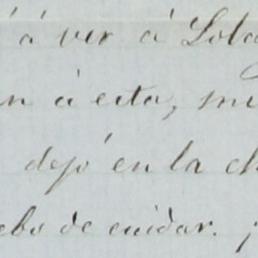 á á ver á Lola
n á esta, mi
dejó en la ch
ebo de cuidar.